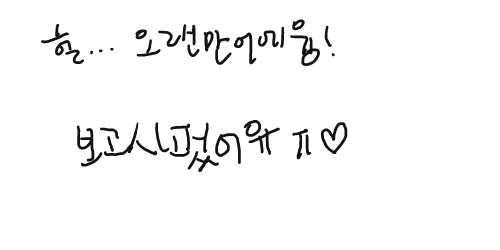 헐... 오랜만이에욤!
보고시펐어유 ㅠ♡